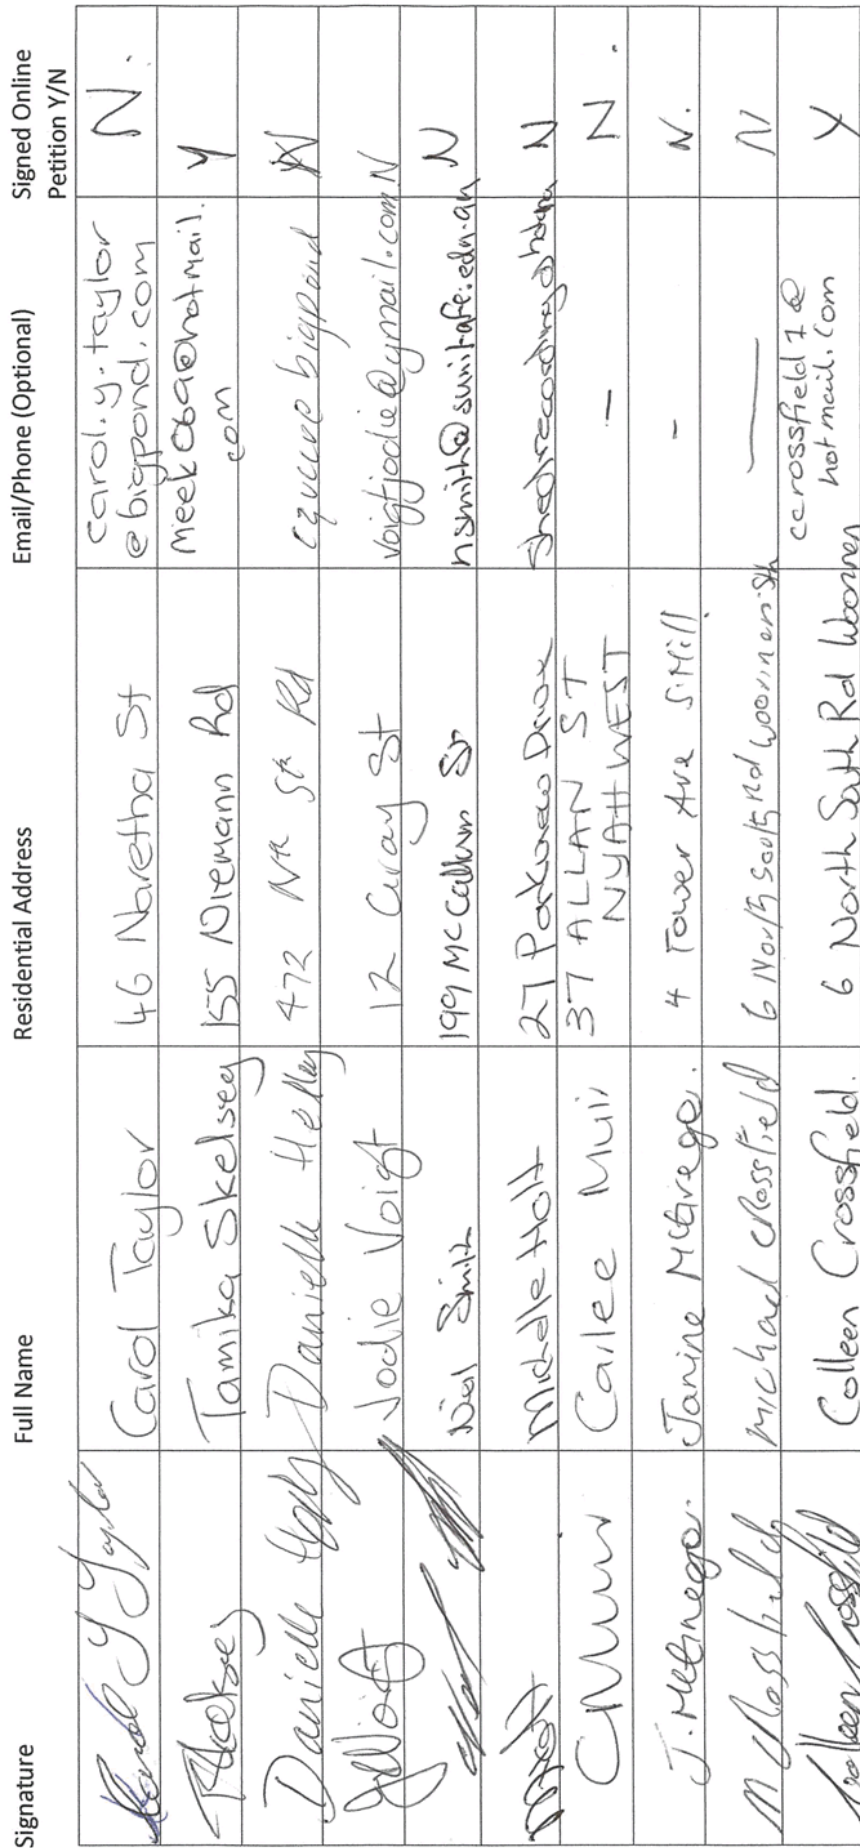 Signature Full Name Residential Address Email/Phone (Optional) Signed Online Petition Y/N
Carol Y Taylor Carol Taylor 46 Naretha St carol.y.taylor
@bigpond.com N.
Tamika Skelsey 155 Niemann Rd meek069@hotmail.
com Y
Danielle 472 Nth Sth Rd bigpond N
JVoigt Jodie Voigt 12 Gray St voigtjodie@gmail.com N
Neil Smith 199 McCallum St nsmith@sunitafe.edu.au N
Michelle Holt 27 Parkview Drive N
CMuir Cailee Muir 37 ALLAN ST
NYAH WEST - N.
J. McGregor. Janine McGregor. 4 Tower Ave S.Hill - N.
M Crossfield Michael Crossfield 6 North South Rd Woorinen Sth — N
Colleen Crossfield Colleen Crossfield. 6 North South Rd Woorinen ccrossfield1@
hotmail.com Y